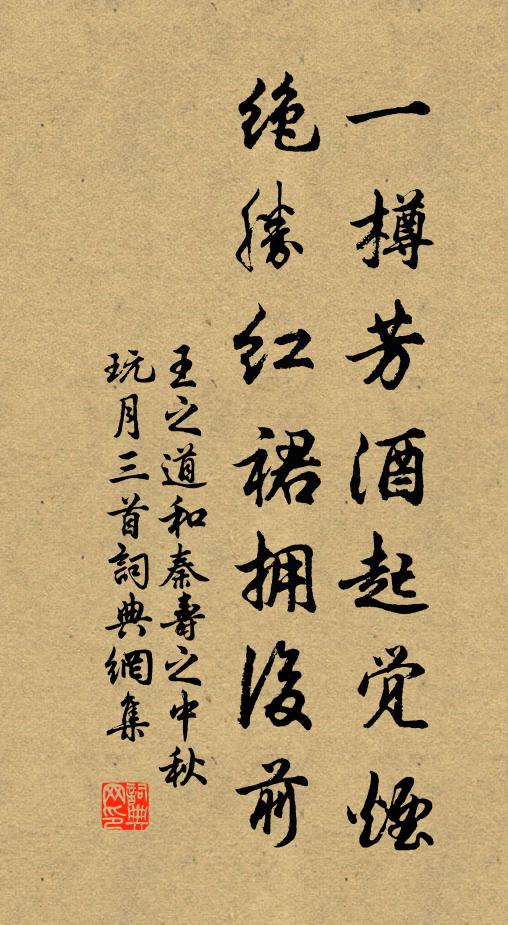 一樽芳酒起觉煙
绝勝红裙拥後前
王之道和秦壽之中秋
玩月三首詞典網集
詞典网印